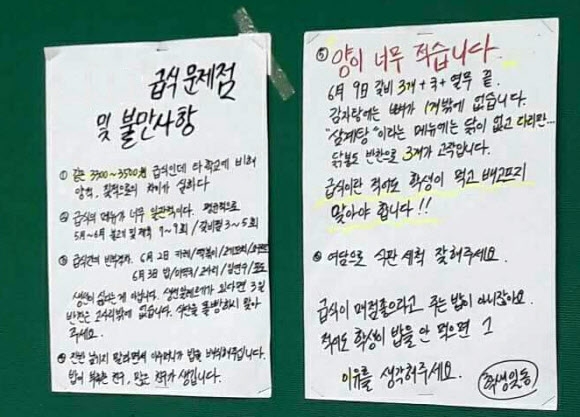 급식 문제점
및 불만사항
① 같은 3300~3500원 급식인데 타 학교에 비해
양적, 질적으로의 차이가 심하다
② 급식의 메뉴가 너무 일관적이다. 평균적으로
5月~6月 불고기 및 제육 7~9회 / 갈비찜 3~5회
③ 급식간의 빈부격차. 6月 2日 카레/떡볶이
6月 3日 밥/미역국
생선이 싫다는 게 아닙니다. 생선알레르기가 있다면 3일
반찬은 고사리밖에 없습니다. 식단을 똑바로 짜
주세요.
④ 잔반 남기지 말라면서 아주머니가 밥을 배식해주십니다.
밥이 부족한 친구, 많은 친구가 생깁니다.
⑤ 양이 너무 적습니다.
6月 9日 갈비 3개 + 국 + 열무 끝.
감자탕에는 뼈가 1개밖에 없습니다.
"삼계탕"이라는 메뉴에는 닭이 없고 다리만...
닭봉도 반찬으로 3개가 고작입니다.
급식이란 적어도 학생이 먹고 배고프지
말아야 합니다!!
⑥ 여담으로 식판 세척 잘해주세요.
급식이 매점좋으라고 주는 밥이 아니잖아요.
적어도 학생이 밥을 안 먹으면 그
이유를 생각해주세요.
학생일동